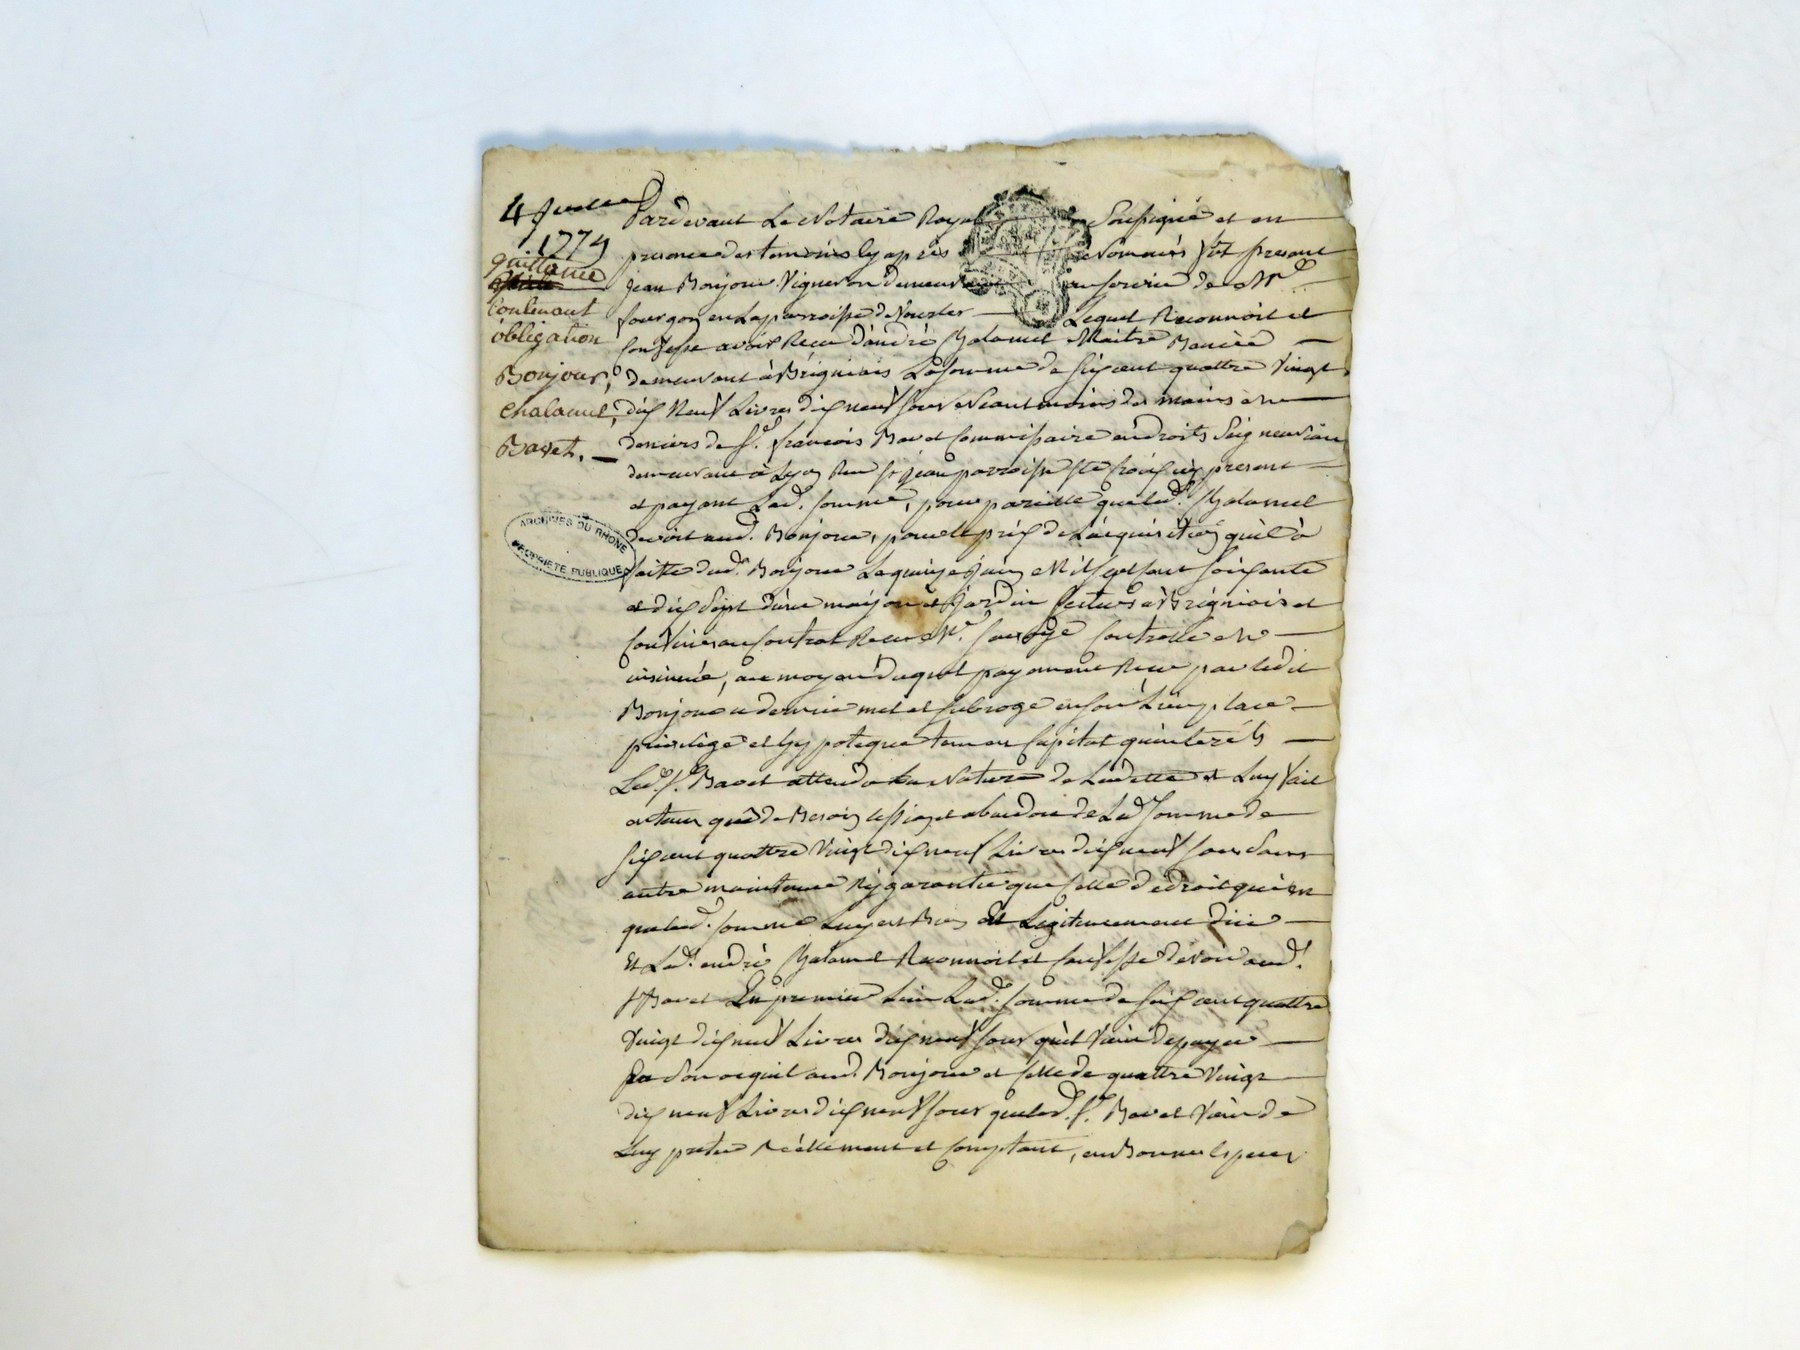 4 Juillet
1774
quittance
Contenant
obligation
Bonjour,
Chalamel,
Bavet.
ARCHIVES DU RHÔNE
PROPRIÉTÉ PUBLIQUE
Pardevant Le Notaire Royal Soussigné et en
presence des temoins cy après Nommés fut present
Jean Bonjour Vigneron demeurant au service de Mr
en La parroisse de Lequel Reconnoit et
Confesse avoir Receu d'andré Chalamel Maitre
demeurant à Brignais La somme de six cent quattre Vingt
dix Neuf Livres dix neuf sous Neantmoins des mains et
deniers de Sr. françois Bavet Commissaire en droits Seigneuriaux
demeurant à Lyon Rue St jean parroisse Ste Croix icy present
et payant Lad. somme, pour pareille que led. Chalamel
devoit aud. Bonjour, pour le prix de L'acquisition qu'il a
faitte dud. Bonjour Le quinze Juin Mil sept cent soixante
et dix sept d'une maison et Jardin scitués à Brignais et
Confinés au Contrat Receu Me. Controllé et
insinué, au moyen duquel payement Receu par ledit
Bonjour ce dernier met et subroge en son Lieu, place
privilège et hypoteque tant en Capital qu'interêts
Led. Sr. Bavet attendu La Nature de La dette et Luy fait
autant que de Besoin cession et abandon de Lad somme de
six cent quattre Vingt dix neuf Livres dix neuf sous sans
autre maintenue Ny garantie que celle de droit qui est
que lad. somme Luy est Bien et Legitimement düe
Et Led. andré Chalamel Reconnoit et Confesse devoir aud.
Sr Bavet En premier Lieu Lad. somme de six cent quattre
Vingt dix neuf Livres dix neuf sous qu'il Vient de payer
à son acquit aud. Bonjour et celle de quattre Vingt
dix neuf Livres dix neuf sous que led. Sr. Bavet Vient de
Luy preter Réellement et Comptant, en Bonnes Especes